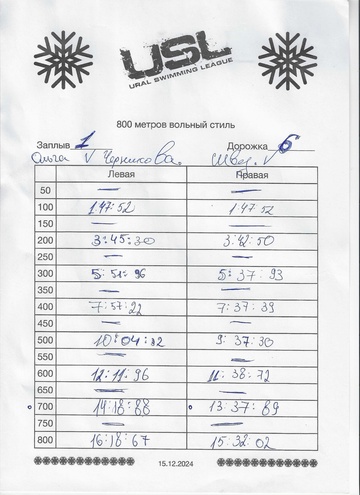 USL
URAL SWIMMING LEAGUE
800 метров вольный стиль
Заплыв 1 Дорожка 6
Ольга V Черникова.
Левая Правая
50 — —
100 1:47:52 1:47:52
150 — —
200 3:45:30 3:42:50
250 — —
300 5:51:96 5:37:93
350 — —
400 7:57:22 7:37:39
450 — —
500 10:04:32 9:37:30
550 — —
600 12:11:96 11:38:72
650 — —
700 14:18:88 13:37:89
750 — —
800 16:18:67 15:32:02
15.12.2024